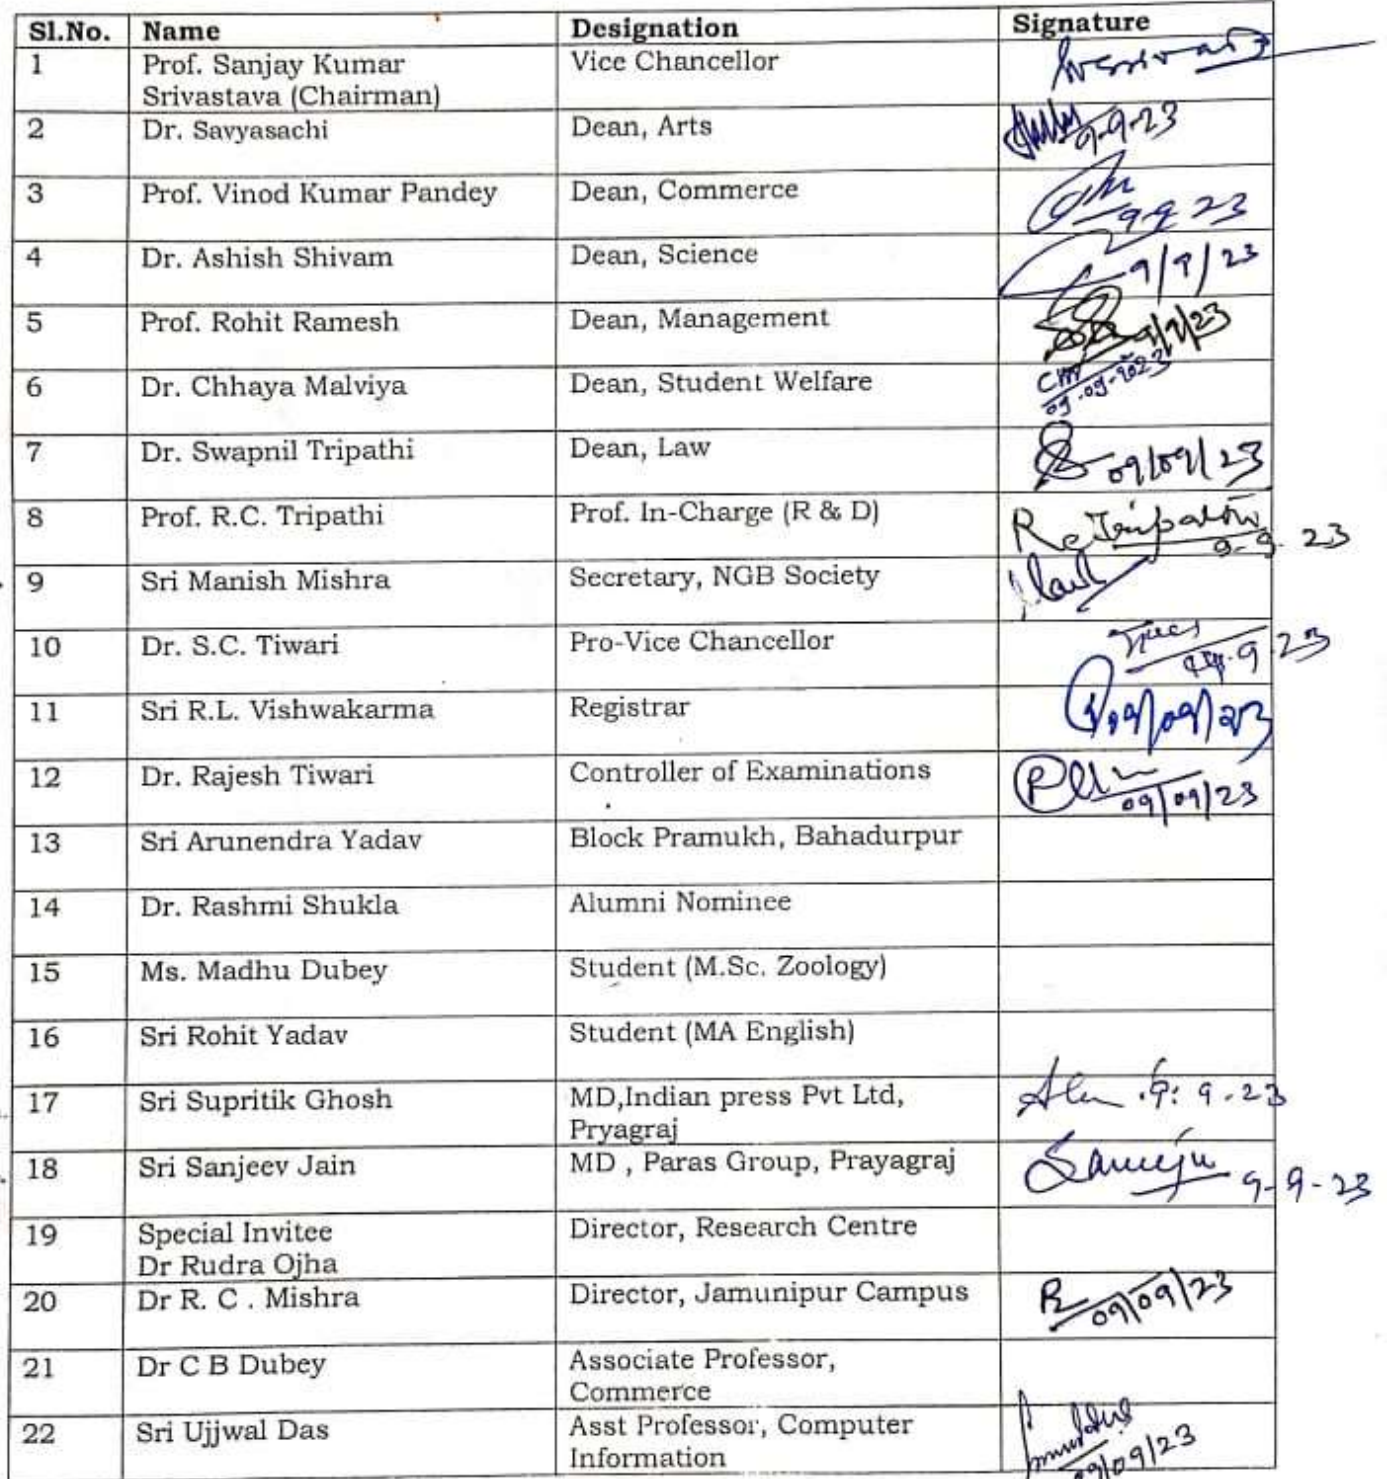 Sl.No. Name Designation Signature
1 Prof. Sanjay Kumar Vice Chancellor
Srivastava (Chairman)
2 Dr. Savyasachi Dean, Arts 9-9-23
3 Prof. Vinod Kumar Pandey Dean, Commerce 9 9 23
4 Dr. Ashish Shivam Dean, Science 9/9/23
5 Prof. Rohit Ramesh Dean, Management
6 Dr. Chhaya Malviya Dean, Student Welfare
7 Dr. Swapnil Tripathi Dean, Law 09/09/23
8 Prof. R.C. Tripathi Prof. In-Charge (R & D) Rc Tripathi
9-9-23
9 Sri Manish Mishra Secretary, NGB Society
10 Dr. S.C. Tiwari Pro-Vice Chancellor
11 Sri R.L. Vishwakarma Registrar 09/09/23
12 Dr. Rajesh Tiwari Controller of Examinations
09/09/23
13 Sri Arunendra Yadav Block Pramukh, Bahadurpur
14 Dr. Rashmi Shukla Alumni Nominee
15 Ms. Madhu Dubey Student (M.Sc. Zoology)
16 Sri Rohit Yadav Student (MA English)
17 Sri Supritik Ghosh MD,Indian press Pvt Ltd, 9.9.23
Pryagraj
18 Sri Sanjeev Jain MD , Paras Group, Prayagraj 9-9-23
19 Special Invitee Director, Research Centre
Dr Rudra Ojha
20 Dr R. C . Mishra Director, Jamunipur Campus 09/09/23
21 Dr C B Dubey Associate Professor,
Commerce
22 Sri Ujjwal Das Asst Professor, Computer
Information 09/09/23